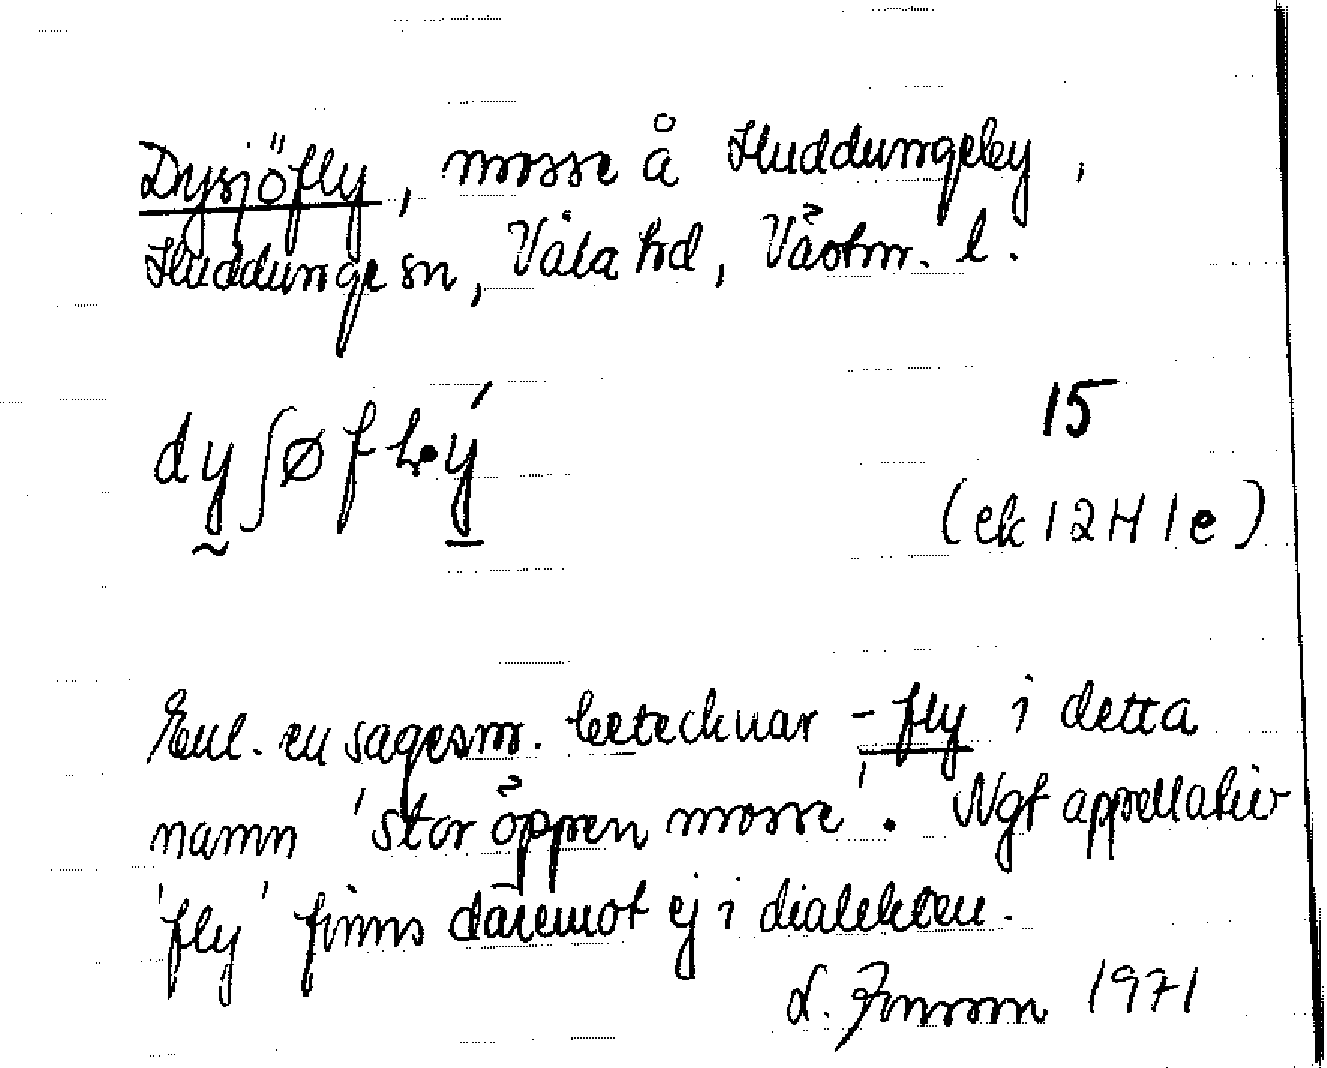 Dysjöfly, mosse å Huddungeby,
Huddunge sn, Våla hd, Västm. l.
dyʃøflý
15
(ek 12H 1e)
Enl. en sagesm. betecknar -fly i detta
namn 'stor öppen mosse'. Ngt appellativ
'fly' finns däremot ej i dialekten.
L. 1971